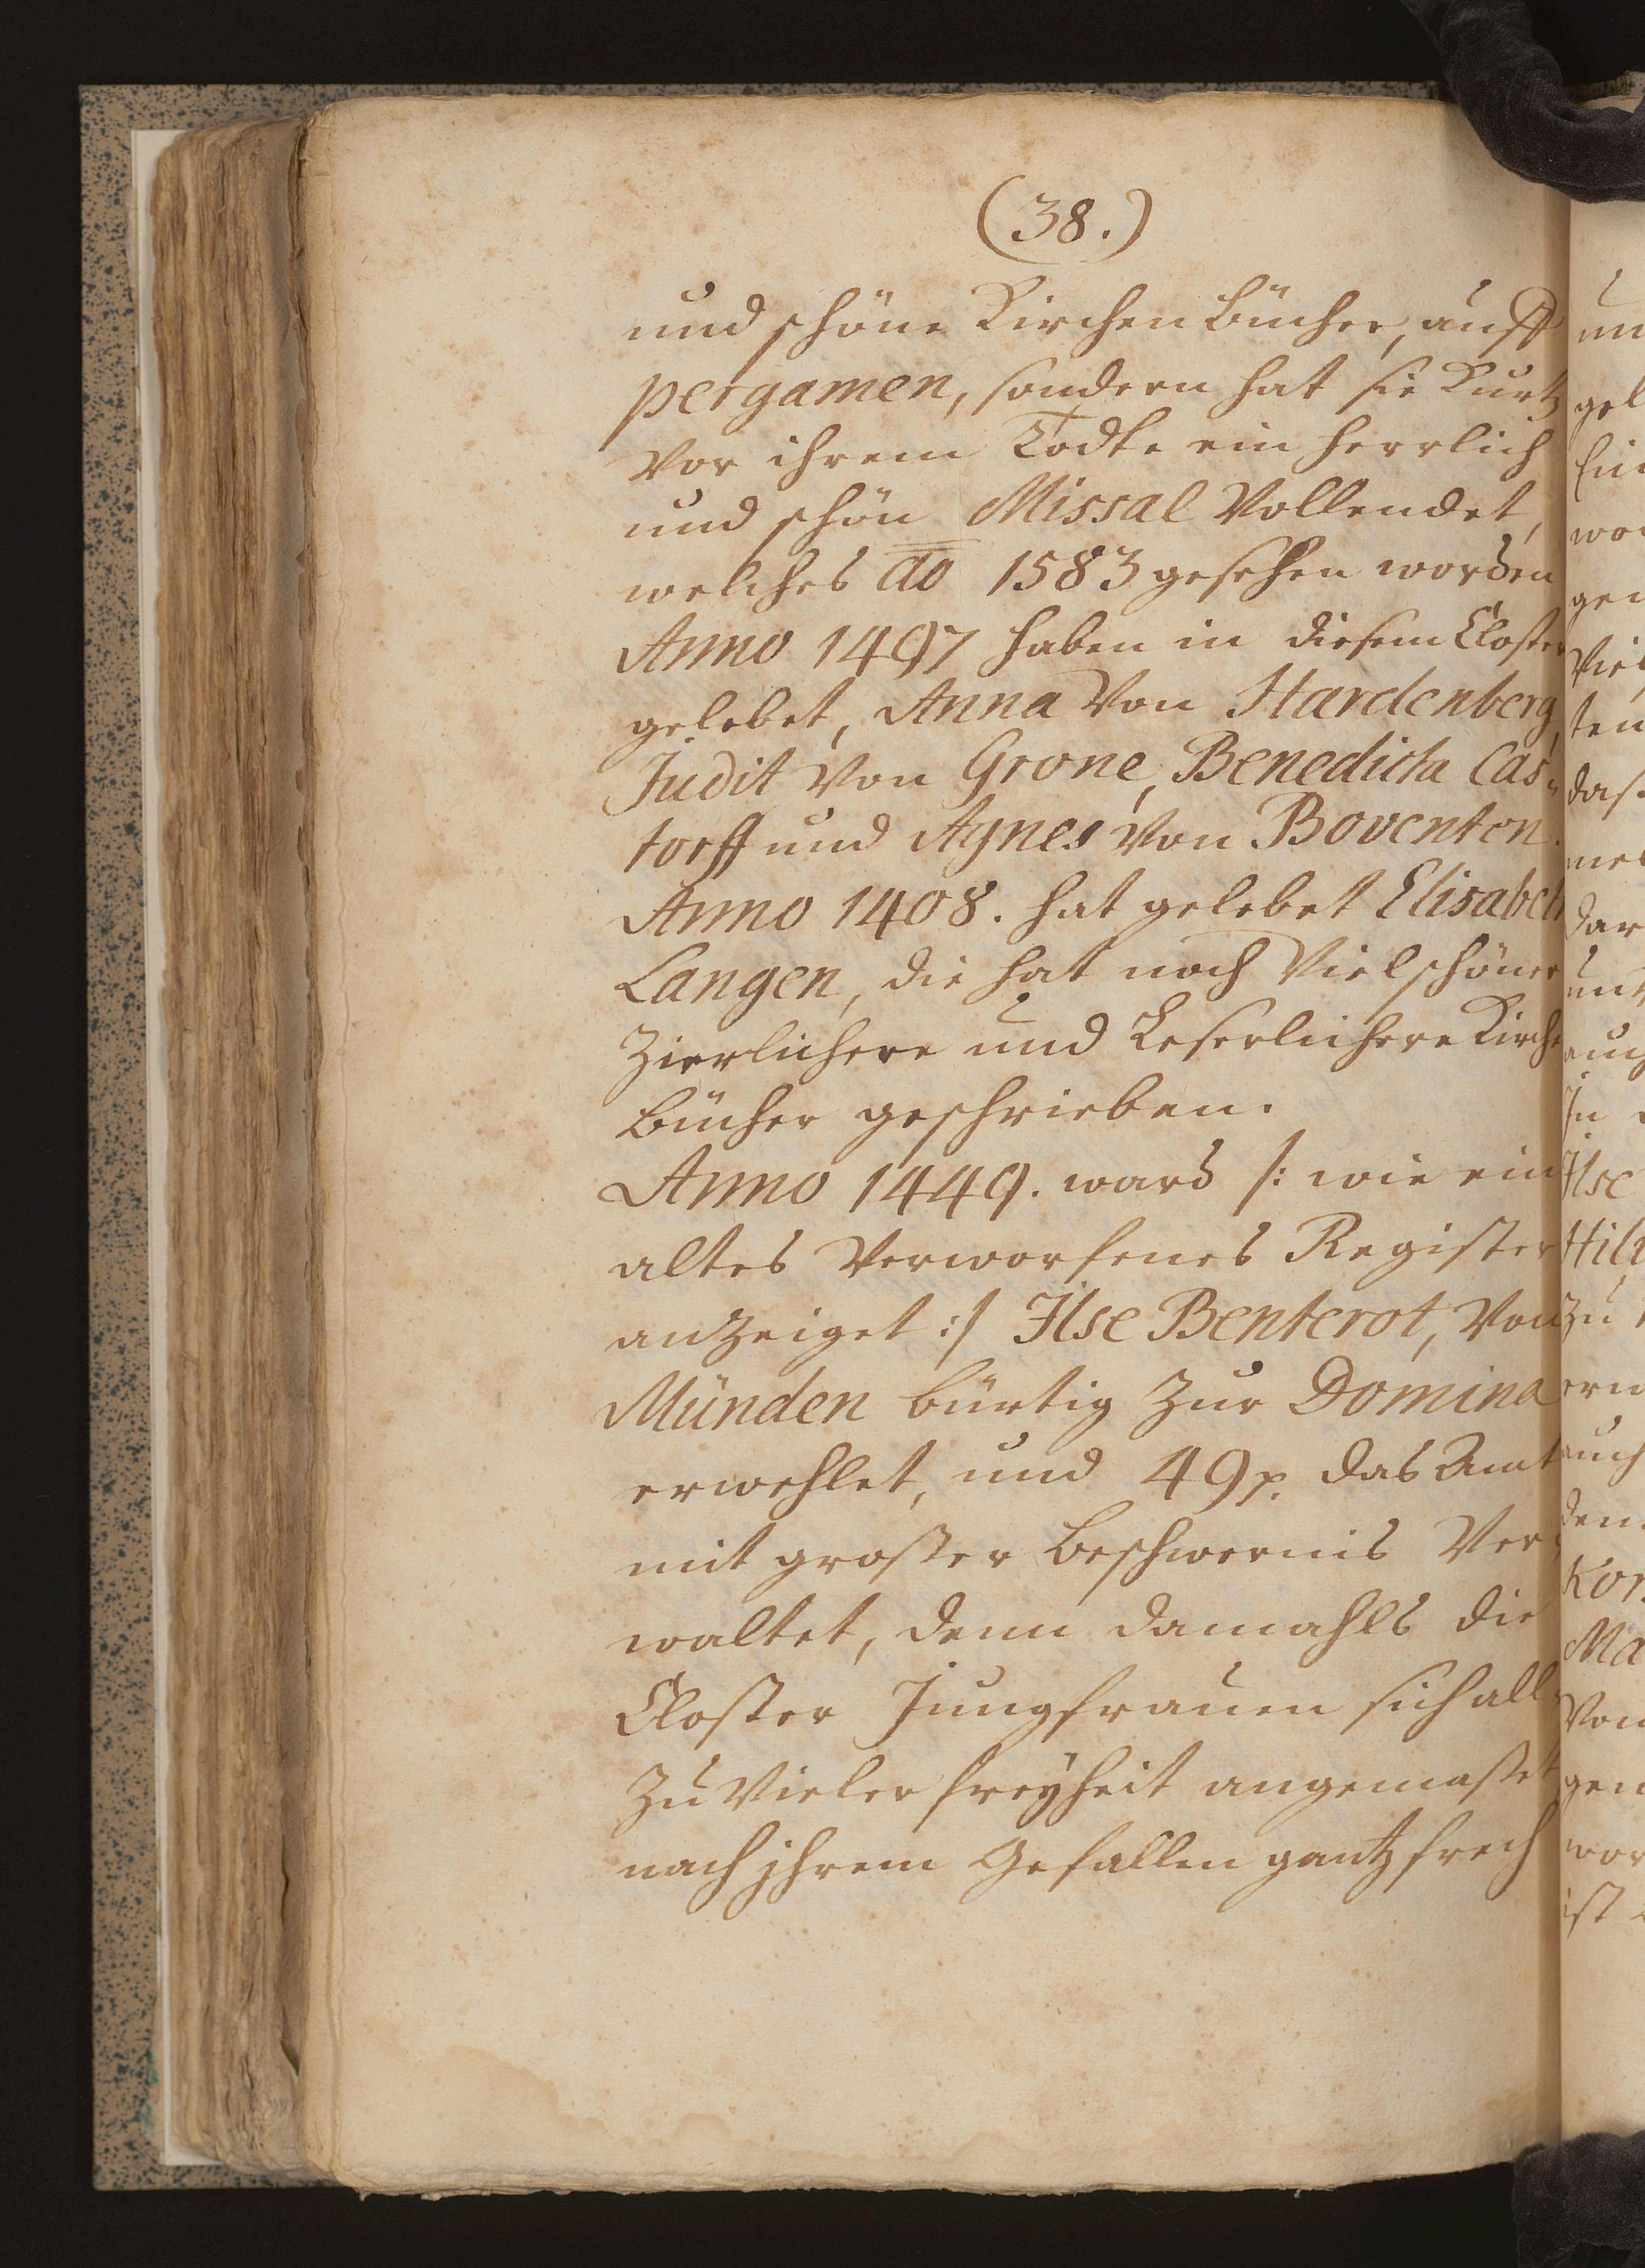 (38.)
und schöne Kirchen Bücher, auff
pergamen, sondern hat sie Kurtz
vor ihrem Todte ein herrlich
und schön Missal Vollendet,
welches ao 1583 gesehen worden
Anno 1497 haben in diesem Closter
gelebet, Anna Von Hardenberg,
Judit Von Grone, Benedicta Cas-
torff und Agnes Von Boventen.
Anno 1408. hat gelebet Elisabeth
Langen, die hat noch Viel schöner
Zierlichere und Leserlichere Kirche
Bücher geschrieben.
Anno 1449. ward /: wie ein
altes Verworfenes Register
anzeiget :/ Ilse Benterot, Von
Münden bürtig Zur Domina
erwehlet, und 49 das Amt
mit großer Beschwernis Ver-
waltet, denn damahls die
Closter Jungfrauen sich all
Zu Vieler freyheit angemaßet
nach jhrem Gefallen gantz frech